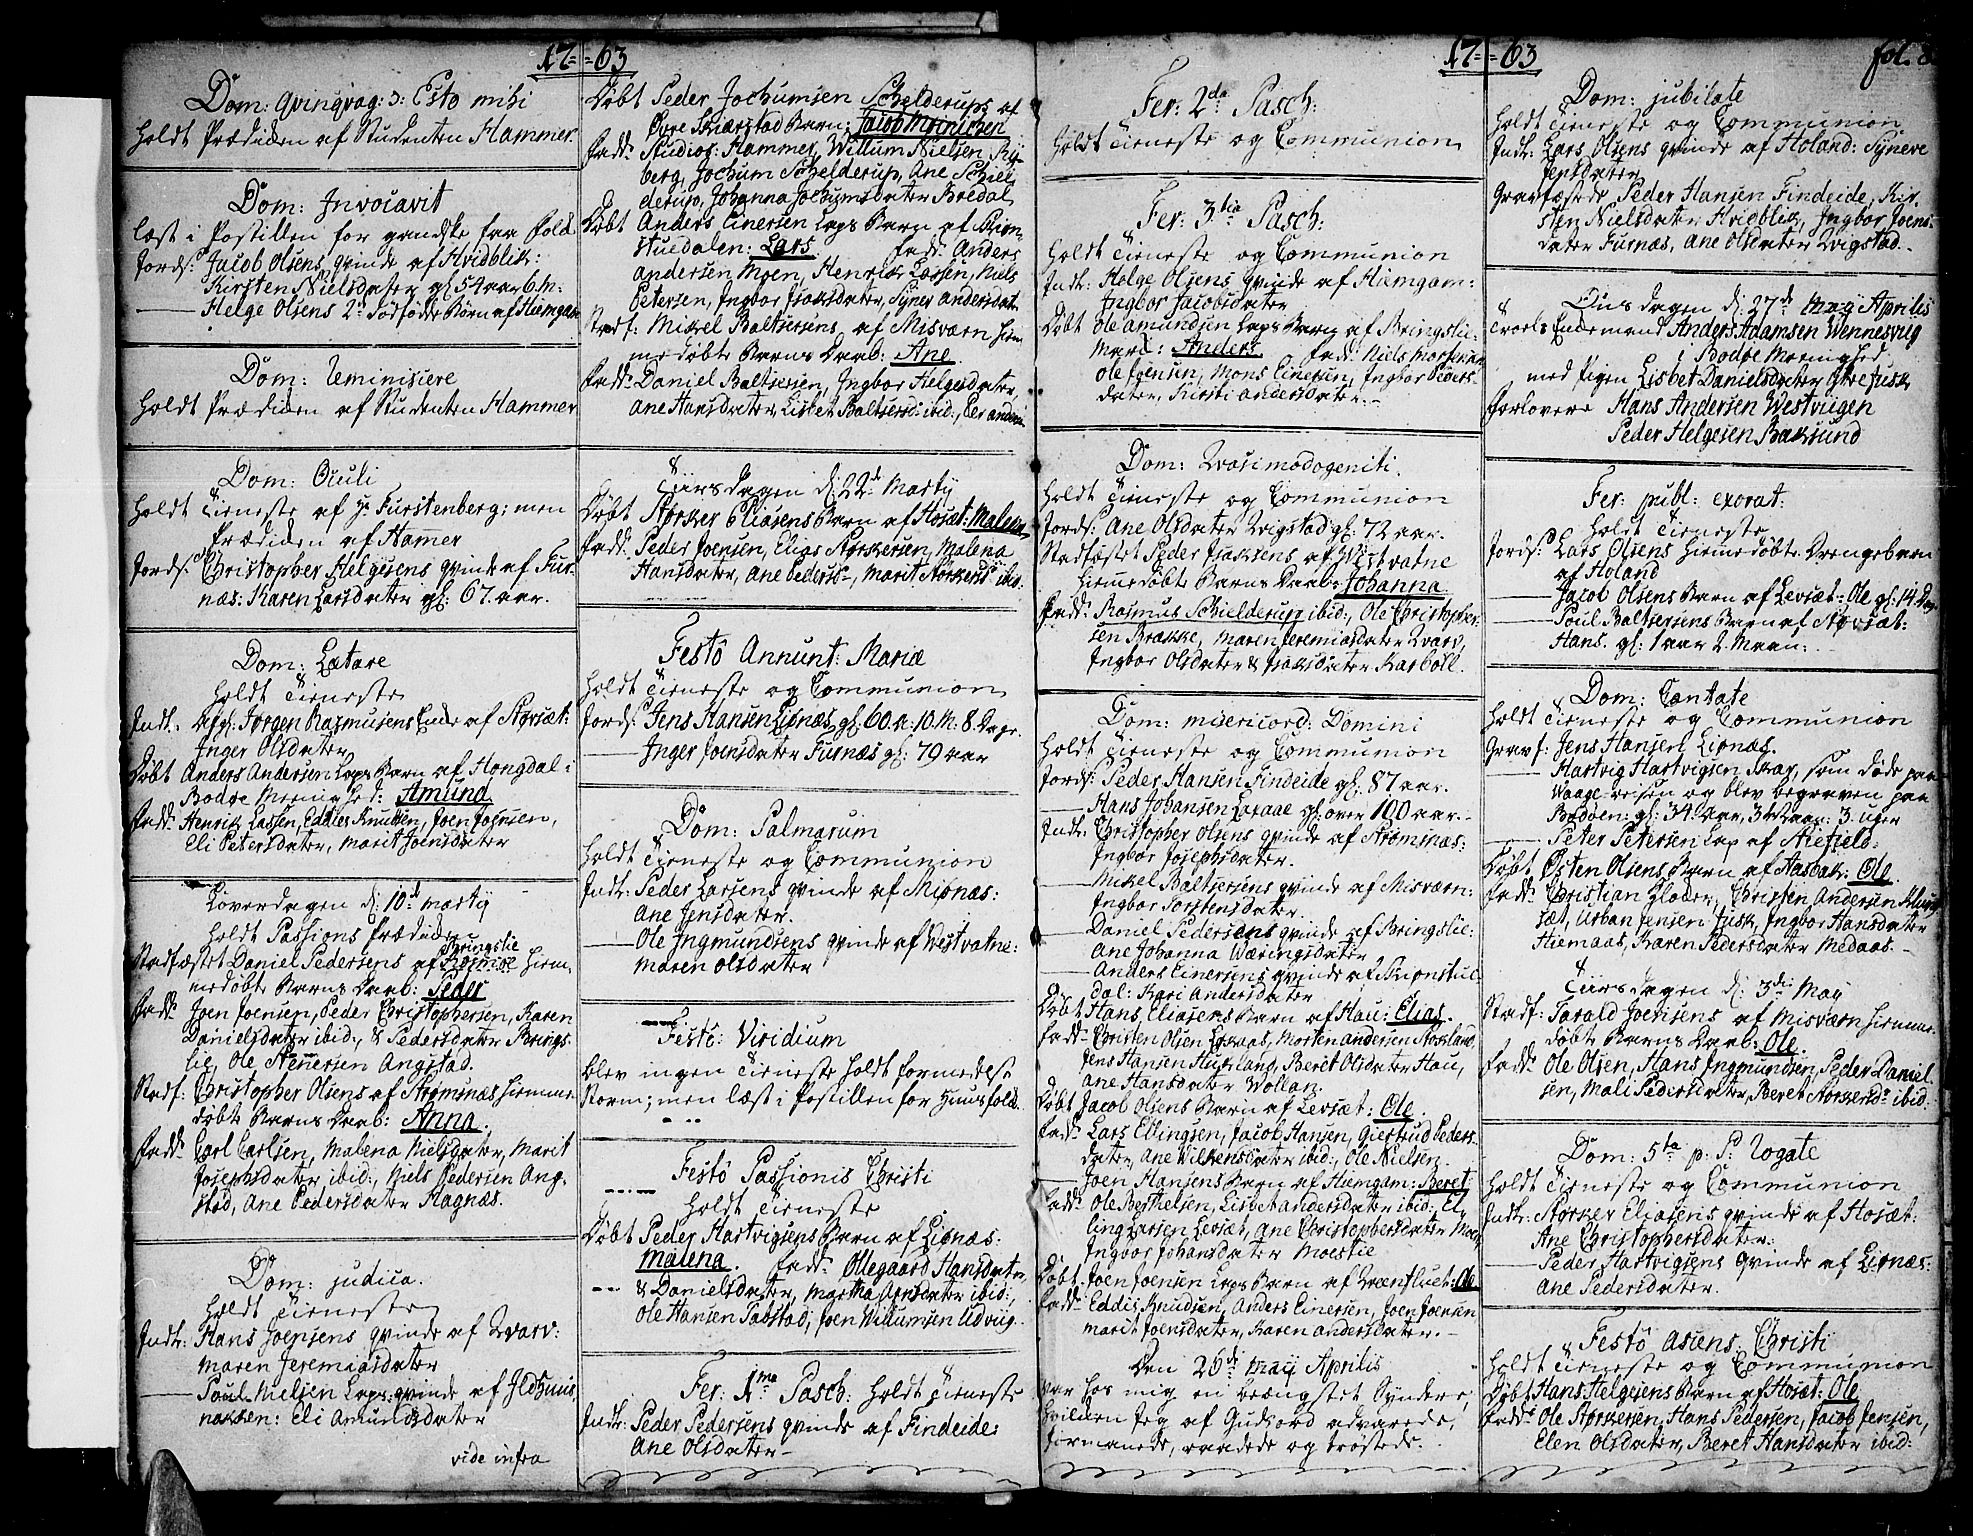 17-63
Dom: Qvingvag: ɔ: Esto mihi
holdt Prædiken af Studenten Hammer.
Dom: Invocavit
læst i Postillen for
Jords: Jacob Olsens qvinde af Hvidblik:
Kirsten Nielsdater gl: 54 aar 6. m:
Helge Olsens 2de dødfødde Børn af Hiemgam
Dom: Reminiscere
holdt Prædiken af Studenten Hammer
Dom: Oculi
holdt Tieneste af Hr Furstenberg; men
Prædiken af Hamer
Jords: Christopher Helgesens qvinde af Fur-
næs: Karen Larsdater gl: 67. aar.
Dom: Lætare
holdt Tieneste
Indt: afgl: Jørgen Rasmusens Enke af Størsæt:
Inger Olsdater
Døbt Anders Andersen Laps Barn af Hongdal i
Bodøe Menighed: Amund
Fadd: Henrik Lassen, Eddies Knutsen, Joen Joensen,
Eli Petersdater, Marit Joensdater
Løverdagen d: 10de Martij
holdt Passions Prædiken
Stadfæstet Daniel Pedersens af Bringslie hiem-
medøbte Barns Daab: Peder
Fadd: Joen Joensen, Peder Christophersen, Karen
Danielsdater ibid:, & Pedersdater Brings-
lie, Ole Stenersen Angstad.
Stadf: Christopher Olsens af Strømnæs hiemme-
døbte Barns Daab: Anna.
Fadd: Carl Carlsen, Malena Nielsdater, Marit
Josephsdater, ibid:, Niels Pedersen Ang-
stad, Ane Pedersdater Hagnæs.
Dom: Judica.
holdt Tieneste
Indt: Hans Joensens qvinde af Qvarv:
Maren Jeremiasdater
Poul Nielsen Laps qvinde af Ildhuus
nakken: Eli Amundsdater
vide infra
Døbt Peder Jochumsen Schelderups af
Øvre Skiærstad Barn: Jacob Meinichen
Fadd: Studios: Hammer, Willum Nielsen Ry-
berg, Jochum Schelderup, Ane Schel-
derup, Johanna Jochumsdater Bredal
Døbt Anders Einersen Laps Barn af Brion-
stuedalen: Lars. Fad: Anders
Andersen Moen, Henrik Lassen, Niels
Petersen, Ingbor Isaksdater, Syner Andersdat.
Stadf: Mikel Baltsersens af Misværn hiem
medøbte Barns Daab: Ane.
Fadd: Daniel Baltsersen, Ingbor Helgesdater,
Ane Hansdater, Lisbet Baltsersd: ibid:,
Tiirsdagen d: 22de Martij
Døbt Størker Eliasens Barn af Hosæt: Malena
Fadd: Peder Joensen, Elias Størkersen, Malena
Hansdater, Ane Peders-, Marit Størkersd: ibid:
Festô Annunt: Mariæ
holdt Tieneste og Communion
Jords: Jens Hansen Liønæs gl: 60. a: 10. M: 8. Dage.
Inger Joensdater Furnæs gl: 79 aar
Dom: Palmarum
holdt Tieneste og Communion
Indt: Peder Larsens qvinde af Miønæs:
Ane Jensdater.
Ole Ingmundsens qvinde af Westvatne:
Maren Olsdater
Festô: Viridium
blev ingen Tieneste holdt formedelst
Storm; men læst i Postillen for Huusfolk.
Festô Passionis Christi
holdt Tieneste
Døbt Peder Hartvigsens Barn af Liønæs:
Malena. Fadd: Ollegaard Hansdater,
& Danielsdater, Martha Arnsdater ibid:,
Ole Hansen Tabstad, Joen Willumsen Udviig.
Fer: 1ma Pasch: holdt Tieneste
Indt: Peder Pedersens qvinde af Findeide:
Ane Olsdater -
17-63
fol. 8
Fer: 2da Pasch:
holdt Tieneste og Communion
Fer: 3tia Pasch:
holdt Tieneste og Communion
Indt: Helge Olsens qvinde af Hiemgam:
Ingbor Jacobsdater
Døbt Ole Amundsen Laps Barn af Bringslie-
mark: Anders. Fad: Niels Mortensen
Ole Joensen, Mons Einersen, Ingbor Peders-
dater, Kirsti Andersdater.-
Dom: Qvasimodogeniti.
holdt Tieneste og Communion
Jords: Ane Olsdater Qvigstad gl: 72 aar.
Stadfæstet Peder Isaksens af Westvatne
hiemmedøbte Barns Daab: Johanna
Fadd: Rasmus Schielderup ibid:, Ole Christopher-
sen Brække, Maren Jeremiasdater Qvarv,
Ingbor Olsdater & Isaksdater Karboll.
Dom: Misericord: Domini
holdt Tieneste og Communion
Jords: Peder Hansen Findeide gl: 87 aar.
Hans Johansen Lexaae gl: over 100 aar.-
Indt: Christopher Olsens qvinde af Strømnæs:
Ingbor Josephsdater.
Mikel Baltsersens qvinde af Misværn:
Ingbor Torstensdater.
Daniel Pedersens qvinde af Bringslie:
Ane Johanna Wæringsdater
Anders Einersens qvinde af Brionstue-
dal: Kari Andersdater
Døbt Hans Eliasens Barn af Hau: Elias.
Fadd: Christen Olsen Lexaae, Morten Andersen Stokland,
Jens Hansen Huseland, Beret Olsdater Hau,
Ane Hansdater Wollan.
Døbt Jacob Olsens Barn af Levsæt: Ole.
Fadd: Lars Ellingsen, Jacob Hansen, Giertrud Peders-
dater, Ane Wilkensdater ibid:, Ole Nielsen.
Joen Hansens Barn af Hiemgam: Beret
Fadd: Ole Berthelsen, Lisbet Andersdater ibid: El-
ling Larsen Levsæt, Ane Christophersdater Moen,
Ingbor Johansdater Moestie
Døbt Joen Joensen Laps Barn af Grønfluet: Ole
Fadd: Eddis Knudsen, Anders Einersen, Joen Joensen
Marit Joensdater, Karen Andersdater.-
Den 26de Maij Aprilis
var hos mig en beængstet Syndere,
hvilken jeg af Guds ord advarede,
formanede, raadede og trøstede.
Dom: Jubilate
holdt Tieneste og Communion
Indt: Lars Olsens qvinde af Holand: Synneve
Jensdater
Gravfæstede Peder Hansen Findeide, Kir-
sten Nielsdater Hvidblik, Ingbor Joens-
dater Furnæs, Ane Olsdater Qvigstad.-
Tiirsdagen d: 27de Maij Aprilis
Troel: Enkemand Anders Adamsen Wennesvig
i Bodøe Menighed
med Pigen Lisbet Danielsdater Ytre Jusk
Forlovere Hans Andersen Westviigen
Peder Helgesen Baksund
Fer: publ: exorat:
holdt Tieneste
Jords: Lars Olsens hiemmedøbte Drengebarn
af Holand
Jacob Olsens Barn af Levsæt: Ole gl: 14 Dage
Poul Baltsersens Barn af Størsæt:
Hans. gl: 1 aar 2. Maan:
Dom: Cantate
holdt Tieneste og Communion
Gravf: Jens Hansen Liønæs.
Hartvig Hartvigsen Skar, som døde paa
Waage-reisen og blev begraven paa
Bodøen: gl: 34. Aar, 3. Maan: 3. uger
Peter Petersen Lap af Kiefield.
Døbt Østen Olsens Barn af Aasbak: Ole.
Fadd: Christian Glader, Christen Andersen Klung-
sæt, Urban Jensen Jusk, Ingbor Hansdater
Hiemaas, Karen Pedersdater Medaas.-
Tiirsdagen d: 3die Maij
Stadf: Tarald Joensens af Misværn hiemme-
døbte Barns Daab: Ole.
Fadd: Ole Olsen, Hans Ingmundsen, Peder Daniel-
sen, Mali Pedersdater, Beret Størkersd: ibid:
Dom: 5ta p. P: Rogate
holdt Tieneste og Communion
Indt: Størker Eliasens qvinde af Hosæt:
Ane Christophersdater:
Peder Hartvigsens qvinde af Liønæs:
Ane Pedersdater.
Festô Ascens: Christi
holdt Tieneste og Communion
Døbt Hans Helgesens Barn af Hosæt: Ole
Fadd: Ole Størkersen, Hans Pedersen, Jacob Jensen,
Elen Olsdater, Beret Hansdater ibid: